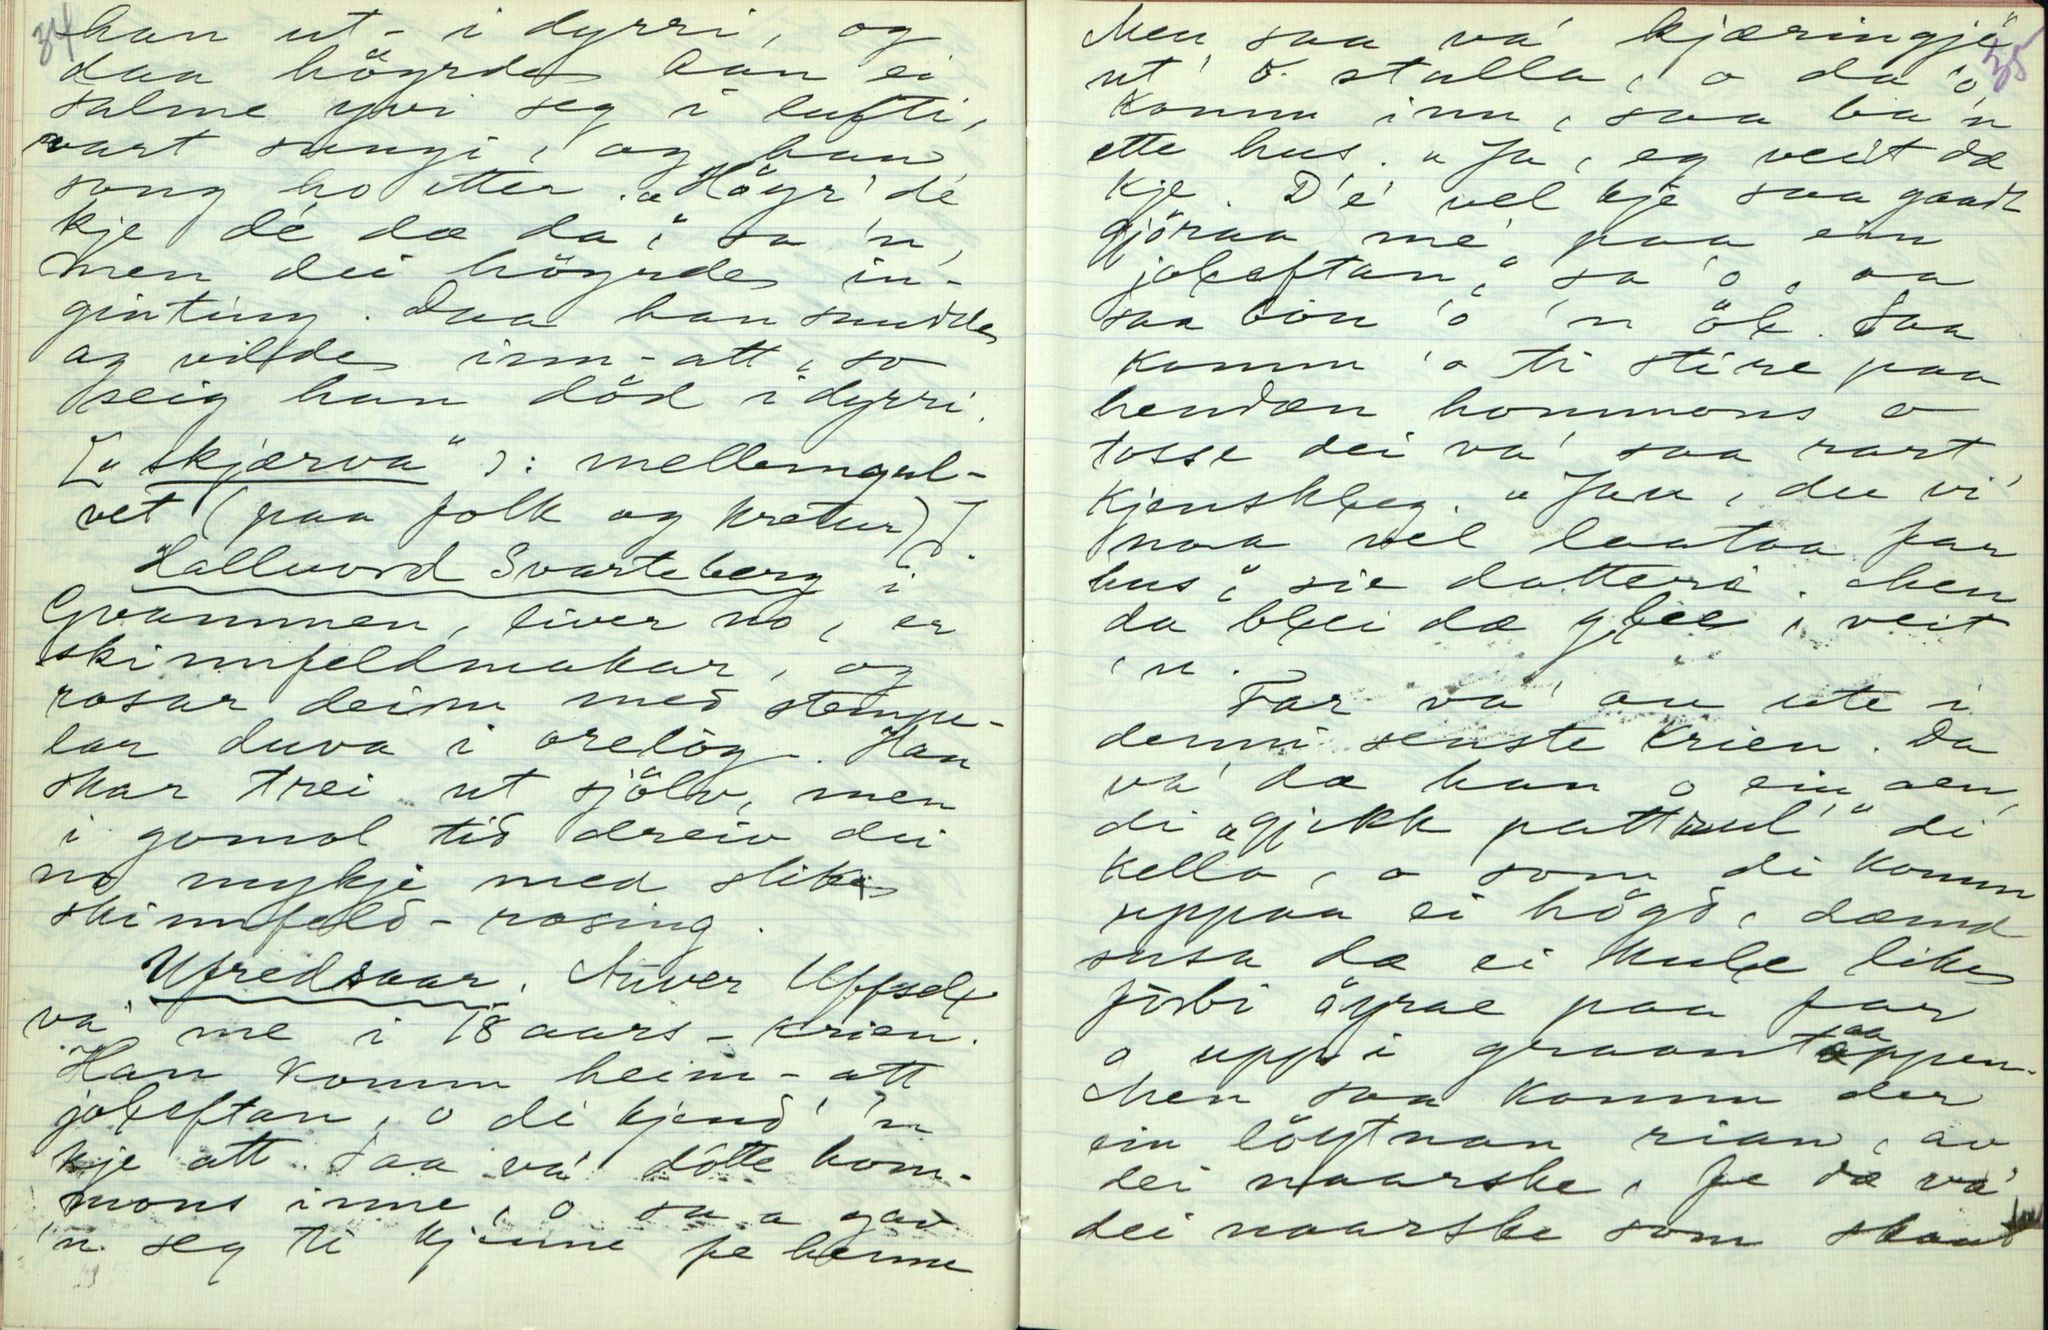 34
han ut - i dyrri, og
daa höyrde han ei
salme yvi seg i lufti,
vart sungi, og han
song ho etter. „Höyr' dé
kje dé dæ da“, sa 'n,
men dei höyrde in-
ginting. Daa han snudde
og vilde inn-att, so
seig han död i dyrri.
[„skjærva“ ɔ: mellemgul-
vet (paa folk og kretur)].
Hallvord Svarteberg i
Gvammen, liver no, er
skinnfeldmakar, og
rosar deim med stempu-
lar duva i orelög. Han
skar trei ut sjölv, men
i gomol tid dreiv dei
no mykje med slike
skinnfeld-rosing.
Ufredsaar. Auver Uppsal
va' me i 18 aars-krien.
Han komm heim-att
joleftan, o di kjend' 'n
kje att. Saa va' dotte hom-
mons inne, o saa gav
'n seg ti kjenne fe henne
35
Men saa va' kjæringje
ut' o stalla, o da 'o
komm inn, saa ba 'n
ette hus. „Ja, eg veit dæ
kje. D'e' vel kje saa gaadt
gjöraa me' paa ein
joleftan,“ sa 'o, aa
saa bon 'o 'n öl. Saa
komm 'o ti stire paa
hendæn hommons o
tosse dei va' saa rart
kjenskleg. „Jau, du vi'
naa vel laataa far
hus“, sie dotteri. Men
da blei dæ glee, veit
'n.
Far va' au ute i
denni senste krien. Da
va' dæ han o ein aen,
di „gjekk pattrul'“ di
kella, o som di komm
uppaa ei högd, dæmd
susa dæ ei kule like
forbi öyrae paa far
o upp i graantaappen.
Men saa komm der
ein löytnan rian, av
dei naarske, fe dæ va'
dei naarske som skaut